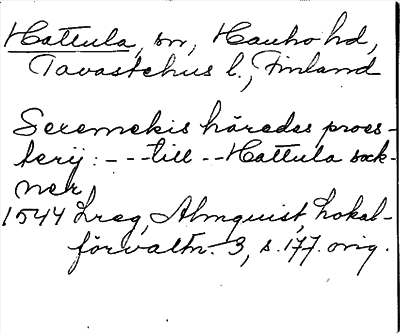 Hattula, sn, Hauho hd,
Tavastehus l., Finland
Sexemekis häredes proes-
terij: --- till -- Hattula sock-
ner,
1544 Lreg, Almquist, Lokal-
förvaltn. 3, s. 177. orig.